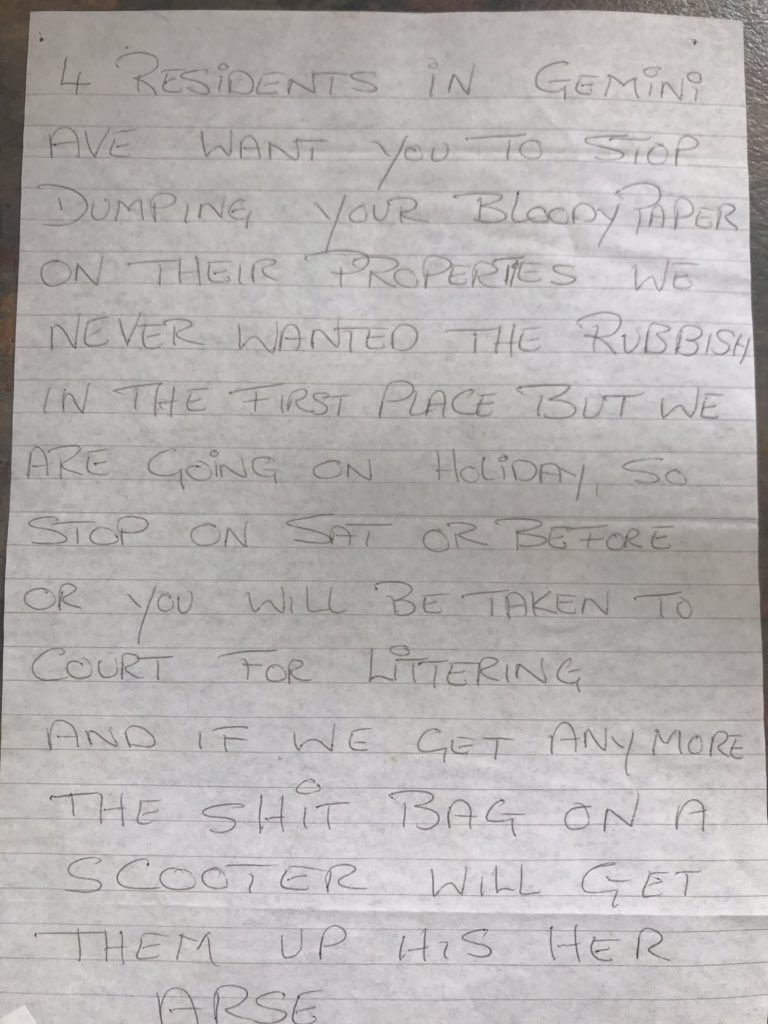 4 RESiDENTS iN GEMiNi
AVE WANT YOU TO STOP
DUMPING YOUR BLOODY PAPER
ON THEIR PROPERTIES WE
NEVER WANTED THE RUBBISH
IN THE FIRST PLACE BUT WE
ARE GOiNG ON HOLiDAY, SO
STOP ON SAT OR BEFORE
OR YOU WiLL BE TAKEN TO
COURT FOR LiTTERING
AND IF WE GET ANY MORE
THE SHiT BAG ON A
SCOOTER WiLL GET
THEM UP HIS HER
ARSE